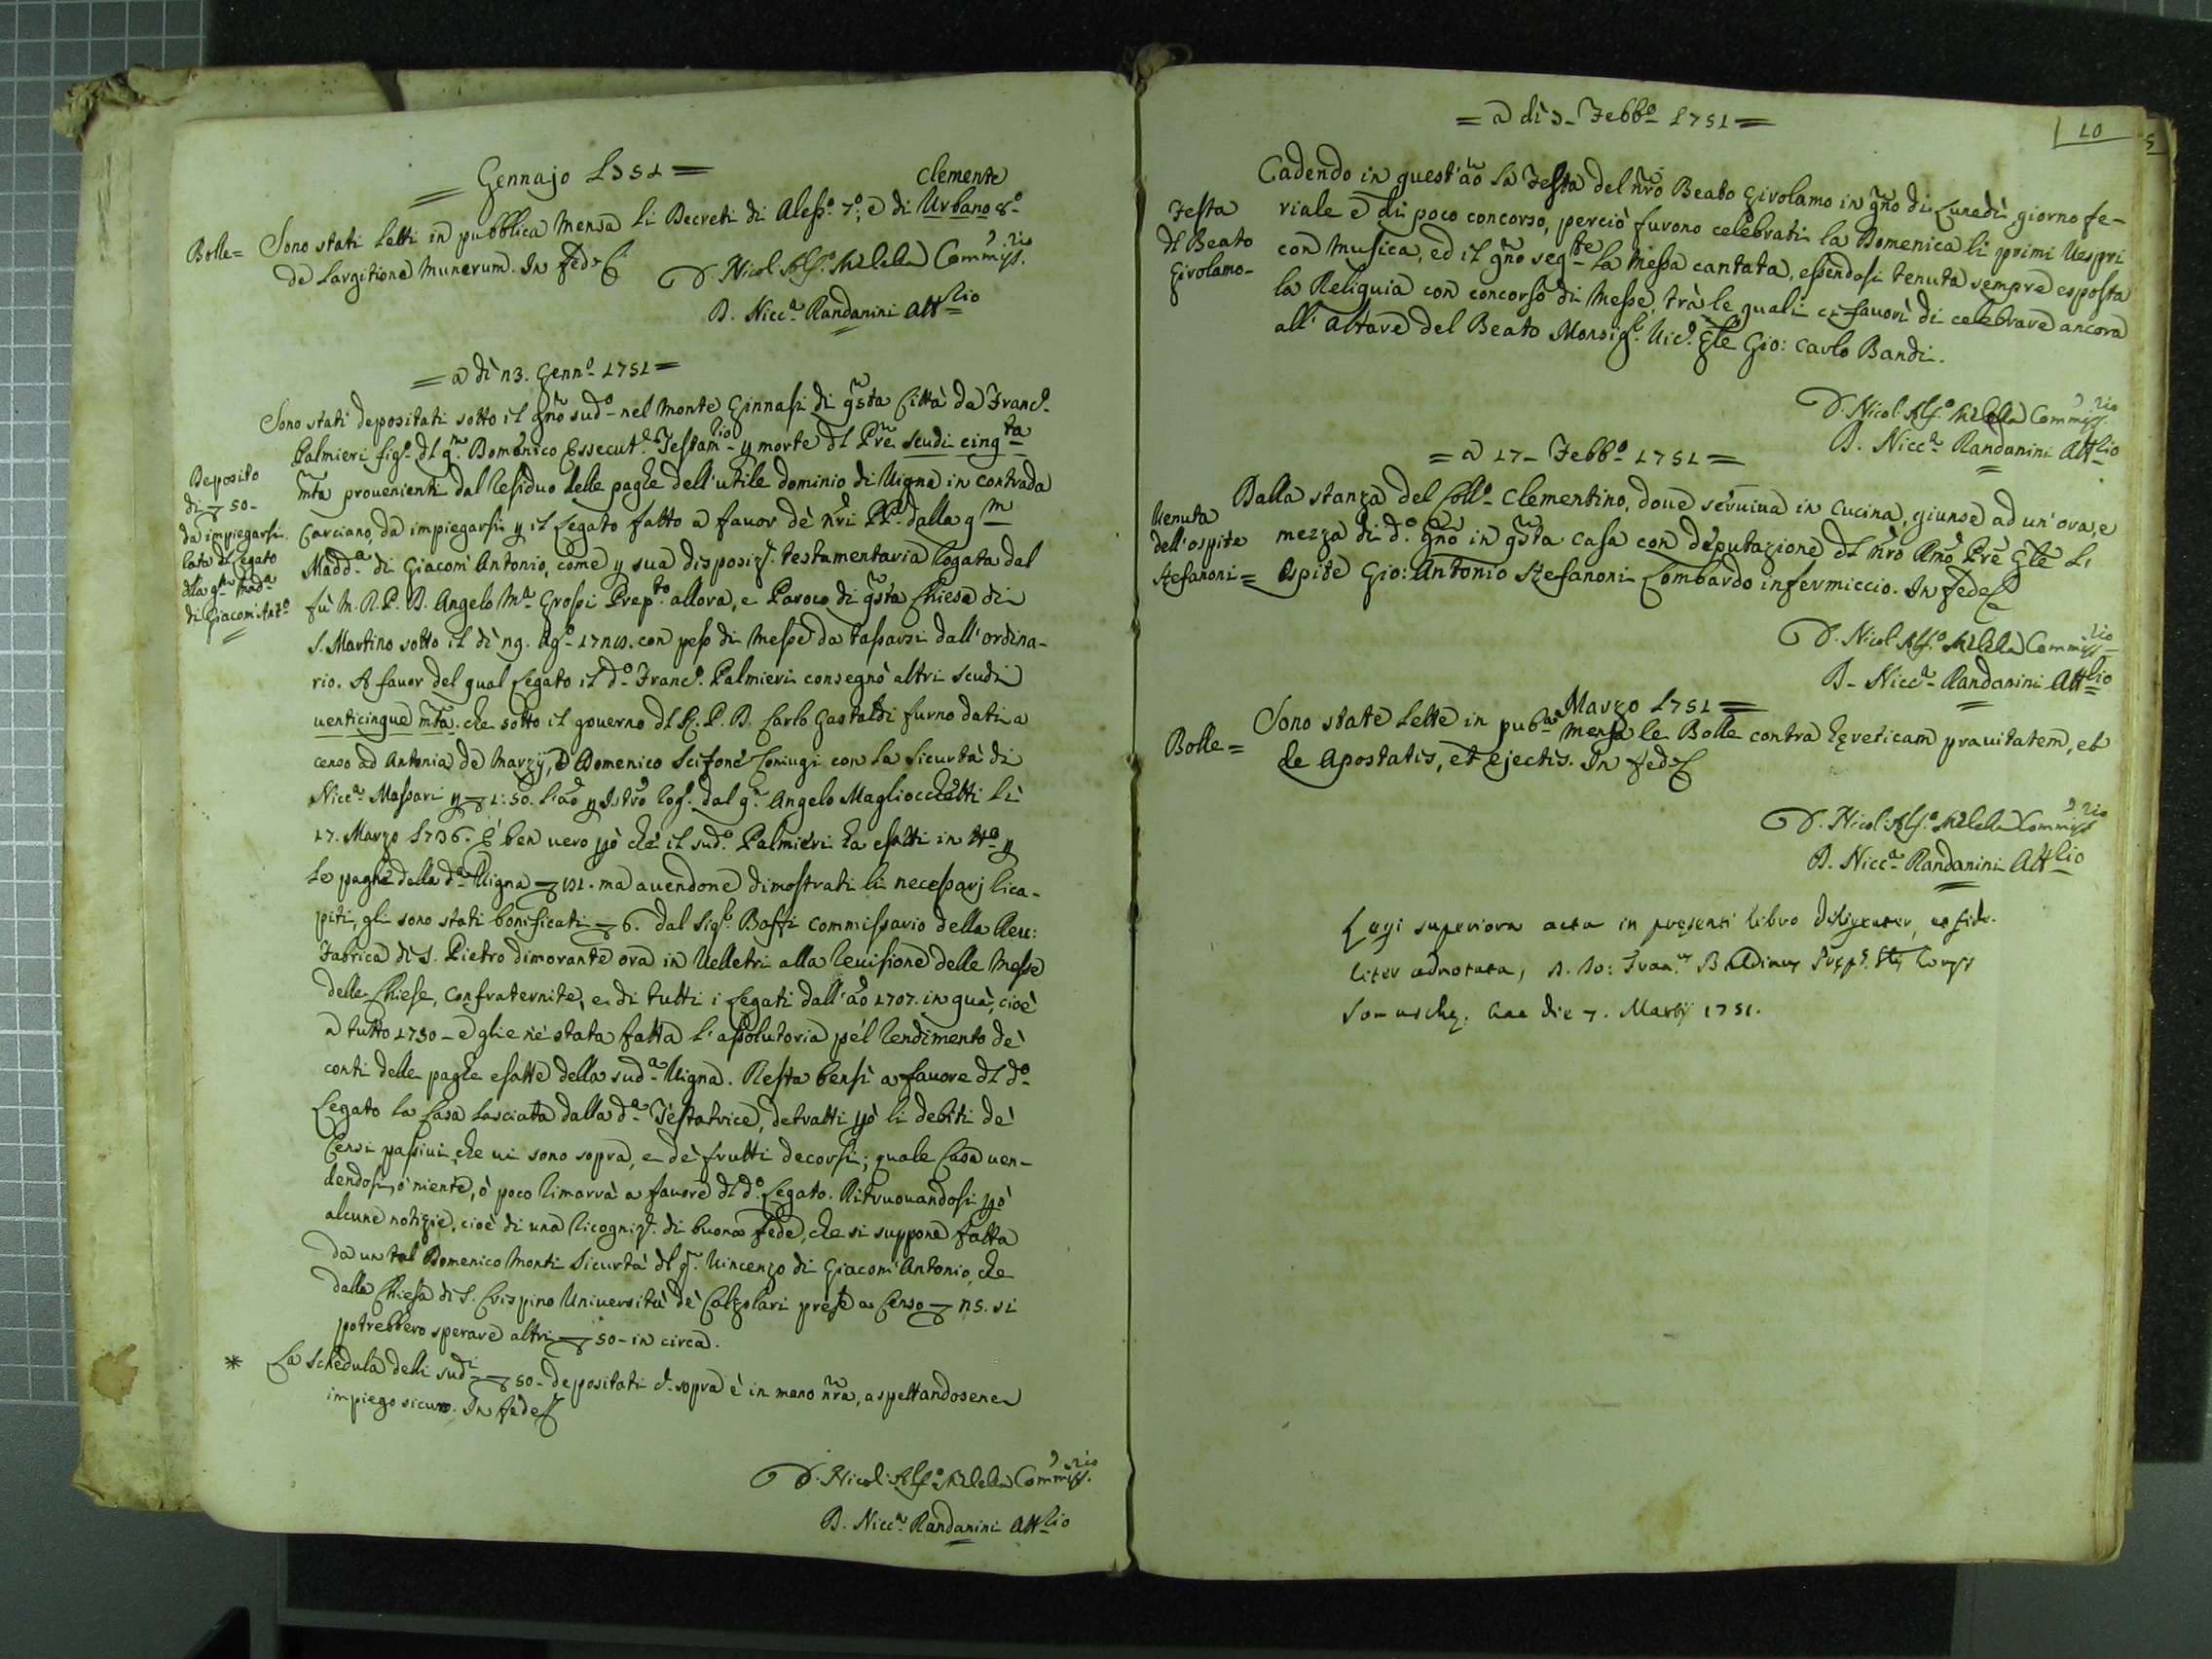 = Gennajo 1751 =
Clemente
Bolle =
Sono stati letti in pubblica mensa li Decreti di Aless.º 7.º, e di Urbano 8.º
de largitione munerum. In fede &
D. Nicol. Alf.º Melella Commiss.rio
D. Nicc.a Randanini Att.rio
= a dì 23. Genn.º 1751 =
Deposito
di 50-
da impiegarsi
Legato
della q.m Mad.a
di Giacom'Ant.º
Sono stati depositati sotto il gno sud.º nel Monte Ginnasi di qsta Città da Franc.º
Palmieri fig.º dl q. Domenico Essecut.e Testam.rio p morte dl Pre scudi cinq.ta
mta provenienti dal residuo delle paghe dell'utile dominio di Vigna in contrada
Carciano, da impiegarsi p il Legato fatto a favor de nri PP. dalla q.m
Madd.a di Giacom'Antonio, come p sua disposiz.e testamentaria rogata dal
fù M. R. P. D. Angelo M.a Grossi Prep.to allora, e Paroco di qsta Chiesa di
S. Martino sotto il dì 29. Ag.º con peso di Messe da tassarsi dall'ordina-
rio. A favor del qual Legato il d.º Franc.º Palmieri consegnò altri scudi
venticinque mta. che sotto il governo dl P. D. Carlo Gastaldi furno dati a
censo ad Antonia de Marzij, e Domenico Scifone Coniugi con la sicurtà di
Nicc.a Massari p 1:50. rog. dal q. Angelo Magliocchetti li
17. Marzo 1736. È ben vero pò che il sud.º Palmieri ha esatti in tt.º p
le paghe della d.a Vigna ma avendone dimostrati li necessarj rica-
piti, gli sono stati bonificati 6. dal Sig.r Baffi Commissario della Rev:
Fabrica di S. Pietro dimorante ora in Velletri alla revisione delle Messe
delle Chiese, Confraternite, e di tutti i Legati dall'ao 1707. in quà, cioè
a tutto 1750 - e gliene stata fatta l'assolutoria pel rendimento de
conti delle paghe esatte della sud.a Vigna. Resta bensì a favore dl d.º
Legato la Casa lasciata dalla d.a Testatrice, detratti pò li debiti de
Censi passivi che vi sono sopra, e de frutti decorsi; quale Casa ven-
dendosi, ò niente, ò poco rimarrà a favore dl d.º Legato. Ritruovandosi pò
alcune notizie, cioè di una ricogniz.e di buona fede, che si suppone fatta
da un tal Domenico Monti sicurtà dl q. Vincenzo di Giacom'Antonio, che
dalla Chiesa di S. Crispino Università de Calzolari prese a Censo 25. si
potrebbero sperare altri 50- in circa.
* La schedula delli sud.i 50- depositati c. sopra è in mano nra, aspettandosene
impiego sicuro. In fede &
D. Nicol. Alf.º Melella Commiss.rio
D. Nicc.a Randanini Att.rio
10
5
= a dì 3- Febb.º 1751 =
Festa
dl Beato
Girolamo-
Cadendo in quest'ao la Festa del nro Beato Girolamo in gno di Lunedì giorno fe-
riale e di poco concorso, perciò furono celebrati la Domenica li primi Vespri
con musica, ed il gno seg.te la Messa cantata, essendosi tenuta sempre esposta
la Reliquia con concorso di Messe, trà le quali ci favorì di celebrare ancora
all'Altare del Beato Monsig.r Vic.º Gle Gio: Carlo Bandi.
D. Nicol. Alf.º Melella Commiss.rio
D. Nicc.a Randanini Att.rio
= a 17- Febb.º 1751 =
Venuta
dell'ospite
Stefanoni =
Dalla stanza del Coll.º Clementino, dove serviva in Cucina, giunse ad un'ora, e
mezza di d.º gno in qsta casa con deputazione dl nro Rmo Pre Gle l'
Ospite Gio: Antonio Stefanoni Lombardo infermiccio. In fede &
D. Nicol. Alf.º Melella Commiss.rio
D. Nicc.a Randanini Att.rio
Marzo 1751 =
Bolle =
Sono state lette in pub.ca mensa le Bolle contra hęreticam pravitatem, et
de Apostatis, et ejectis. In fede &
D. Nicol. Alf.º Melella Commiss.rio
D. Nicc.a Randanini Att.rio
Legi superiora acta in pręsenti libro diligenter, et fide-
liter adnotata, Baldinus Pręp.
hac die 7. Martij 1751.